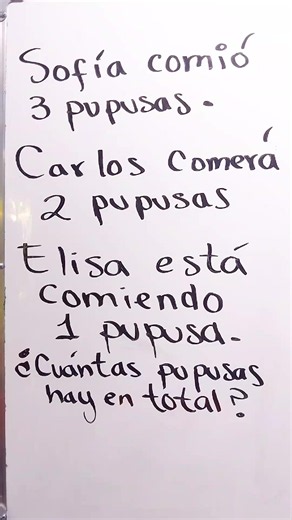 Sofía comió
3 pupusas.
Carlos Comerá
2 pupusas
Elisa está
comiendo
1 pupusa.
¿Cuántas pupusas
hay en total?